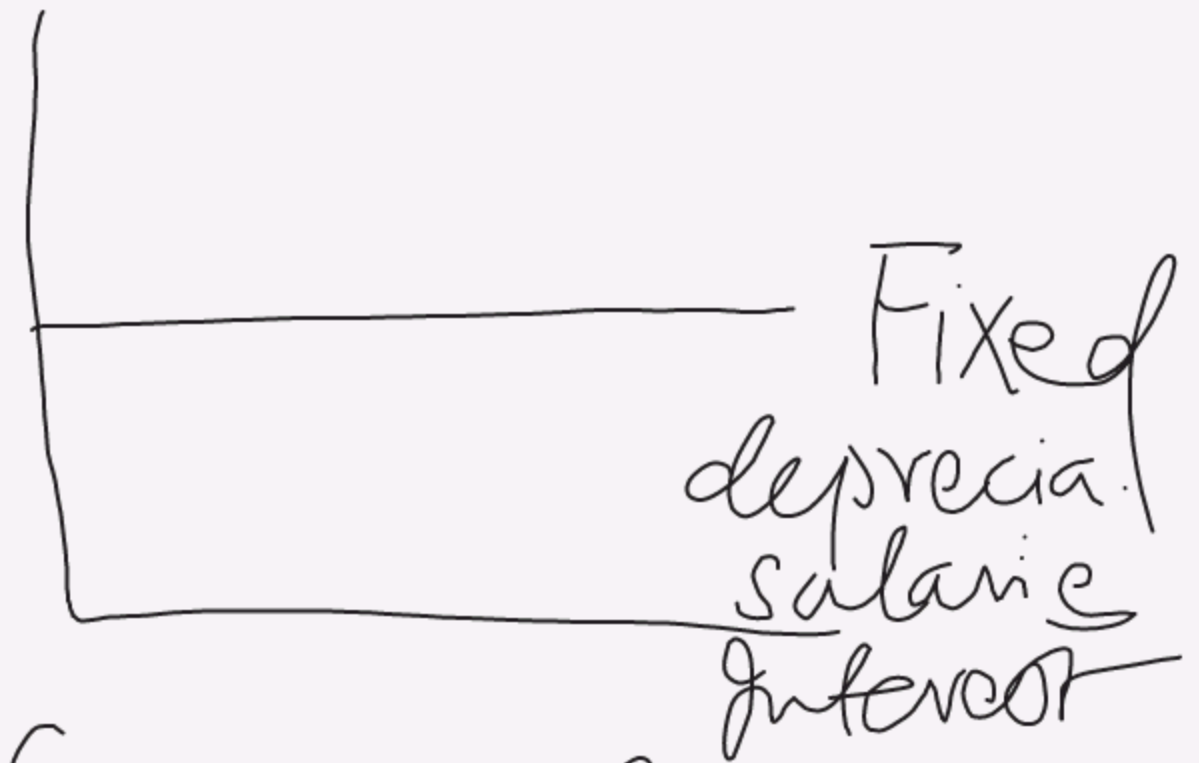 Fixed
deprecia.
salarie
Interest